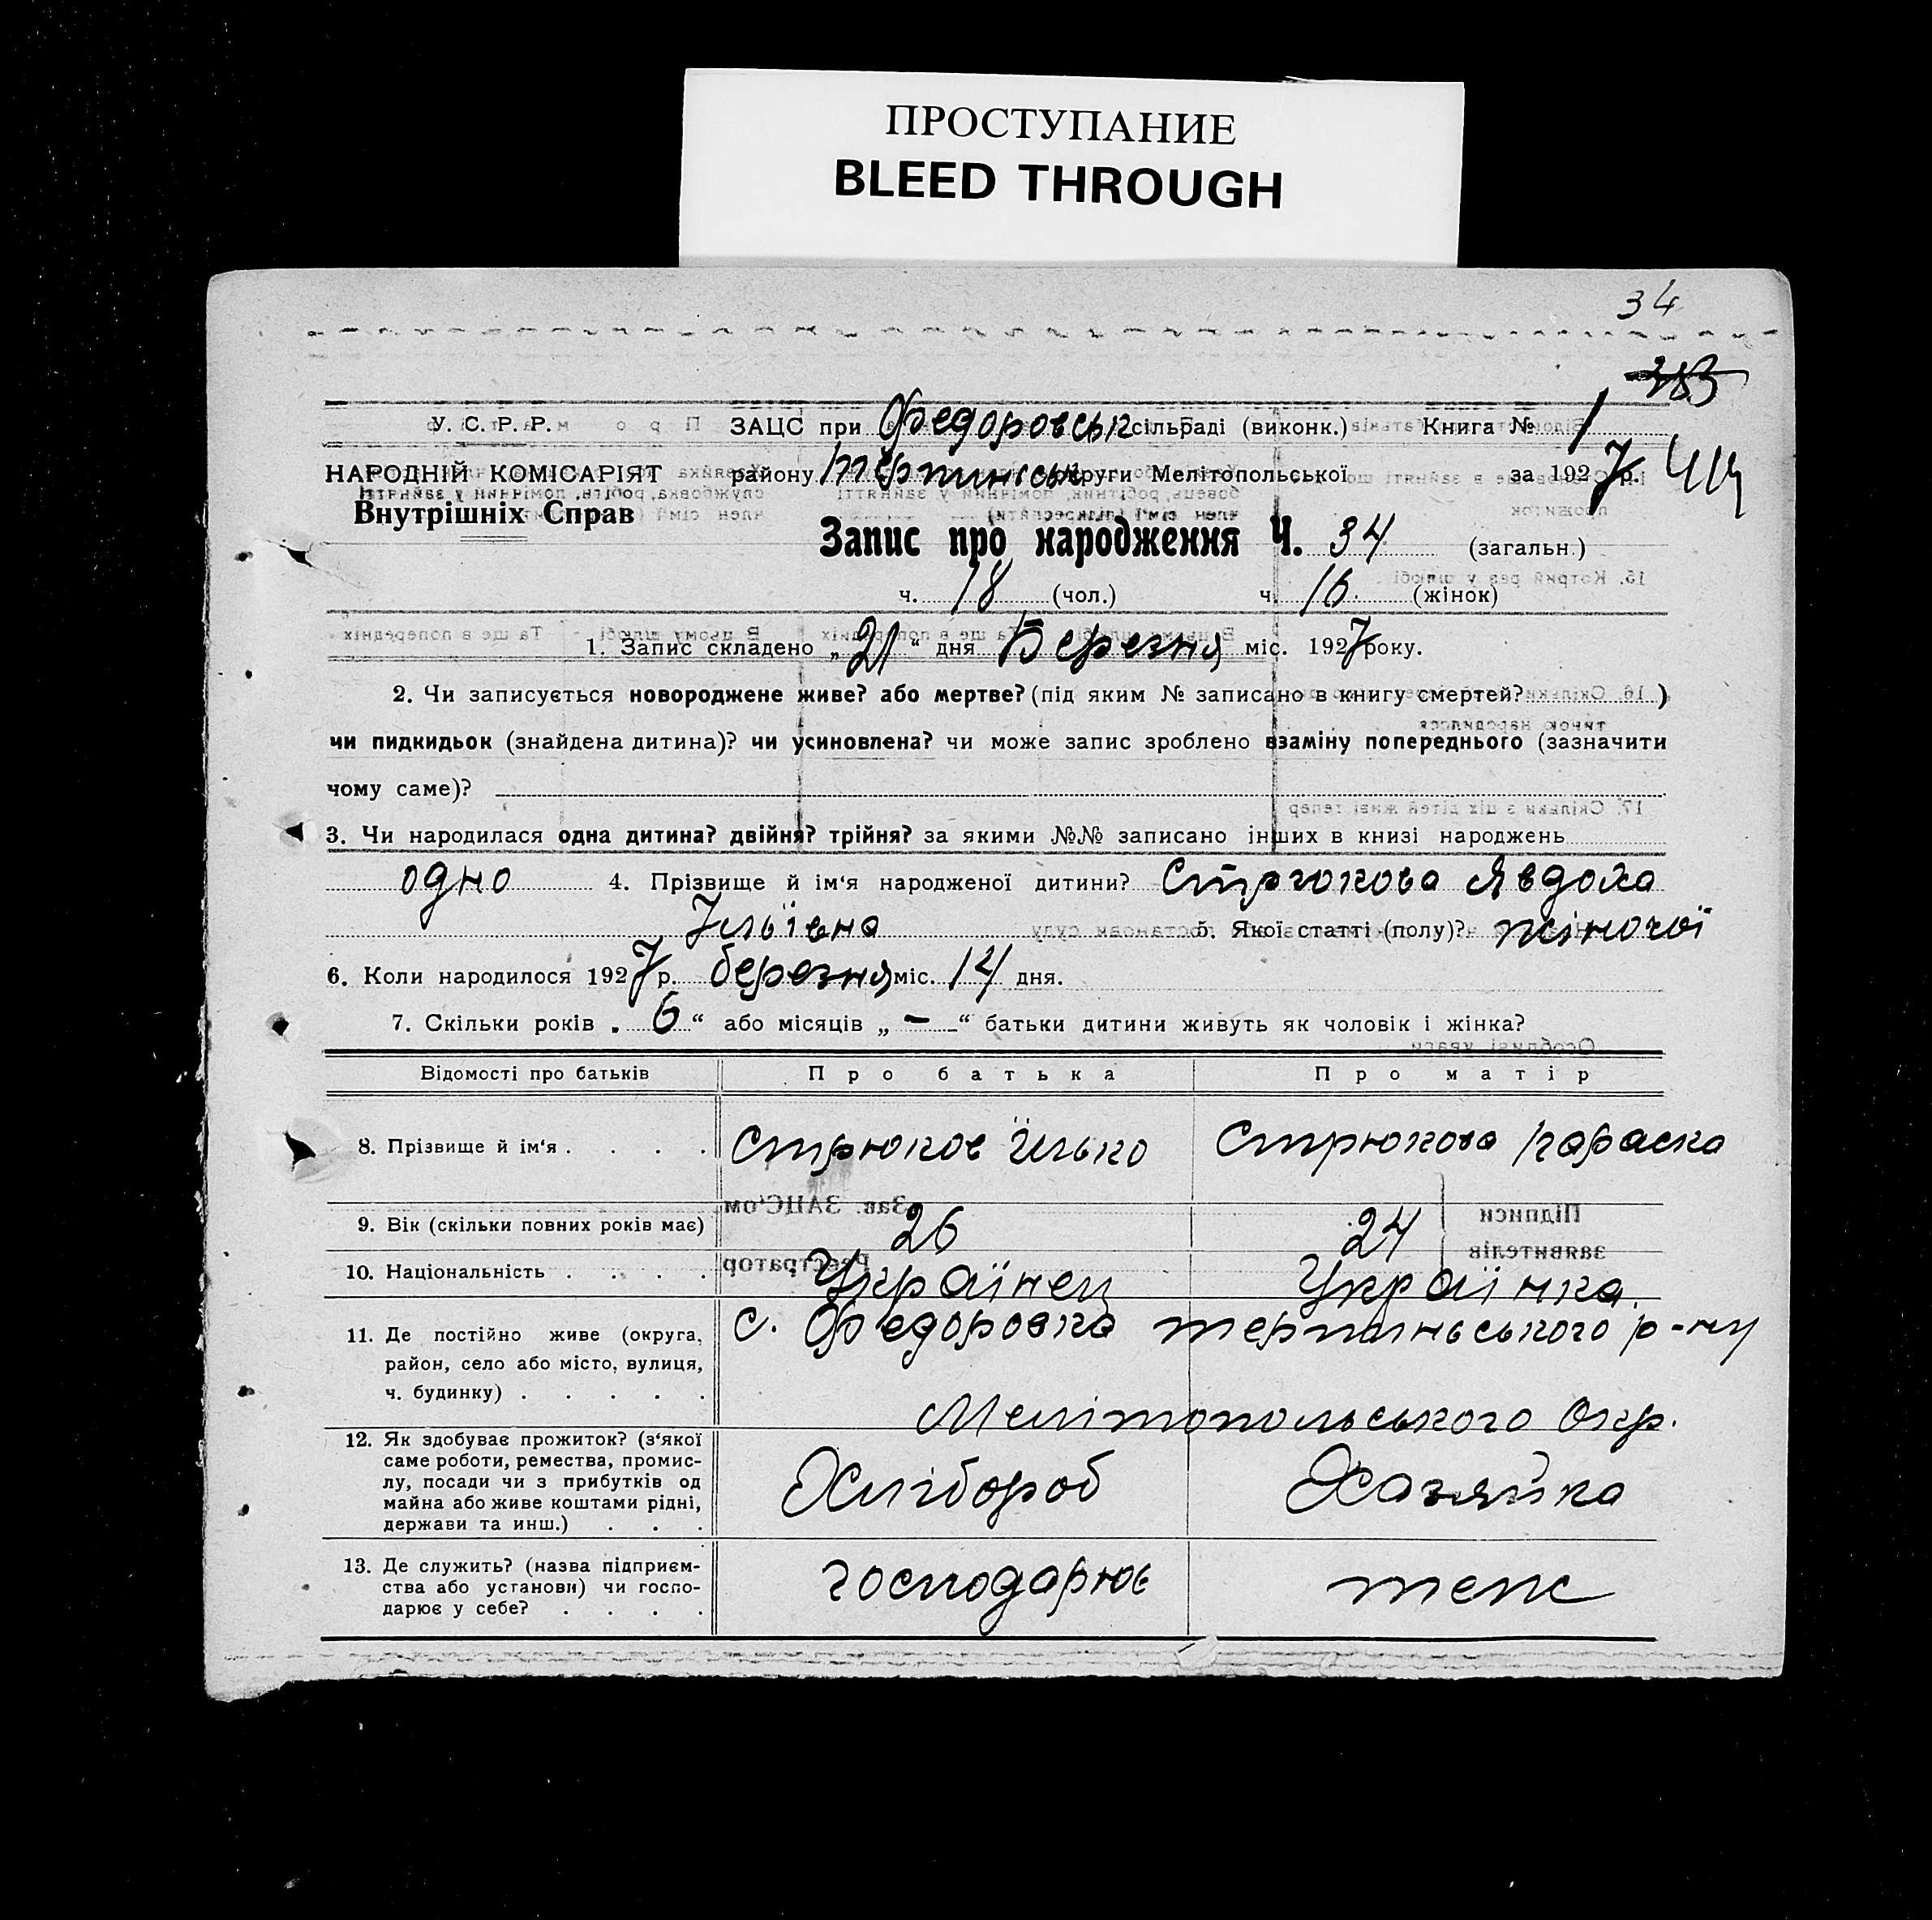 ПРОСТУПАНИЕ
BLEED THROUGH
34
383
У. С. Р. Р. ЗАЦС при Федоровськ сільраді (виконк.) Книга № 1
НАРОДНІЙ КОМІСАРІЯТ району Терпинськ округи Мелітопольської за 1927 р.
Внутрішніх Справ
Запис про народження Ч. 34 (загальн.)
ч. 18 (чол.) ч. 16 (жінок)
1. Запис складено „21“ дня Березня міс. 1927 року.
2. Чи записується новороджене живе? або мертве? (під яким № записано в книгу смертей? )
чи пидкидьок (знайдена дитина)? чи усиновлена? чи може запис зроблено взаміну попереднього (зазначити
чому саме)?
3. Чи народилася одна дитина? двійня? трійня? за якими №№ записано інших в книзі народжень
одно 4. Прізвище й ім‘я народженої дитини? Стрюкова Явдоха
Ільївна 5. Якої статті (полу)? жіночої
6. Коли народилося 1927 р. березня міс. 14 дня.
7. Скільки років „ 6 “ або місяців „ — “ батьки дитини живуть як чоловік і жінка?
Відомості про батьків Про батька Про матір
8. Прізвище й ім‘я . . . . Стрюков Ілько Стрюкова Параска
9. Вік (скільки повних років має) 26 24
10. Національність . . . . Українец Українка
11. Де постійно живе (округа, с. Федоровка терпиньського р-ну
район, село або місто, вулиця,
ч. будинку) . . . . . Мелітопольського Окр.
12. Як здобуває прожиток? (з‘якої
саме роботи, ремества, промис-
лу, посади чи з прибутків од Хлібороб Хазяйка
майна або живе коштами рідні,
держави та инш.) . . .
13. Де служить? (назва підприєм-
ства або установи) чи госпо- господарює теж
дарює у себе? . . . .